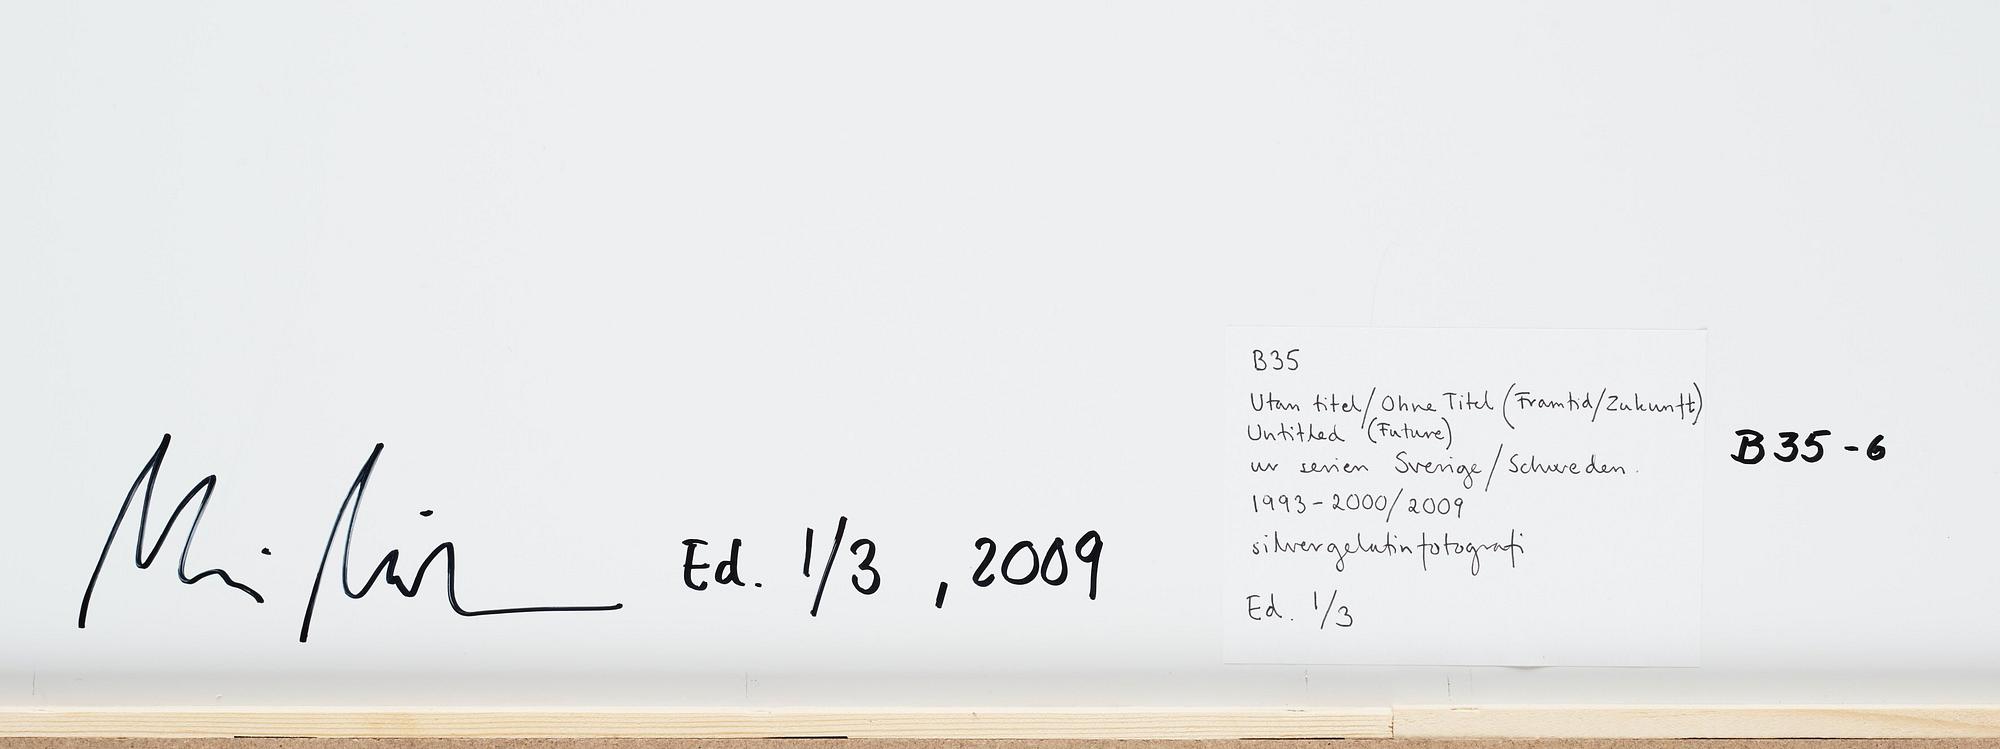 Ed. 1/3 , 2009
B35
Utan titel/Ohne Titel (Framtid/Zukunft)
Untitled (Future)
ur serien Sverige/Schweden.
1993-2000/2009
silvergelatinfotografi
Ed. 1/3
B35-6